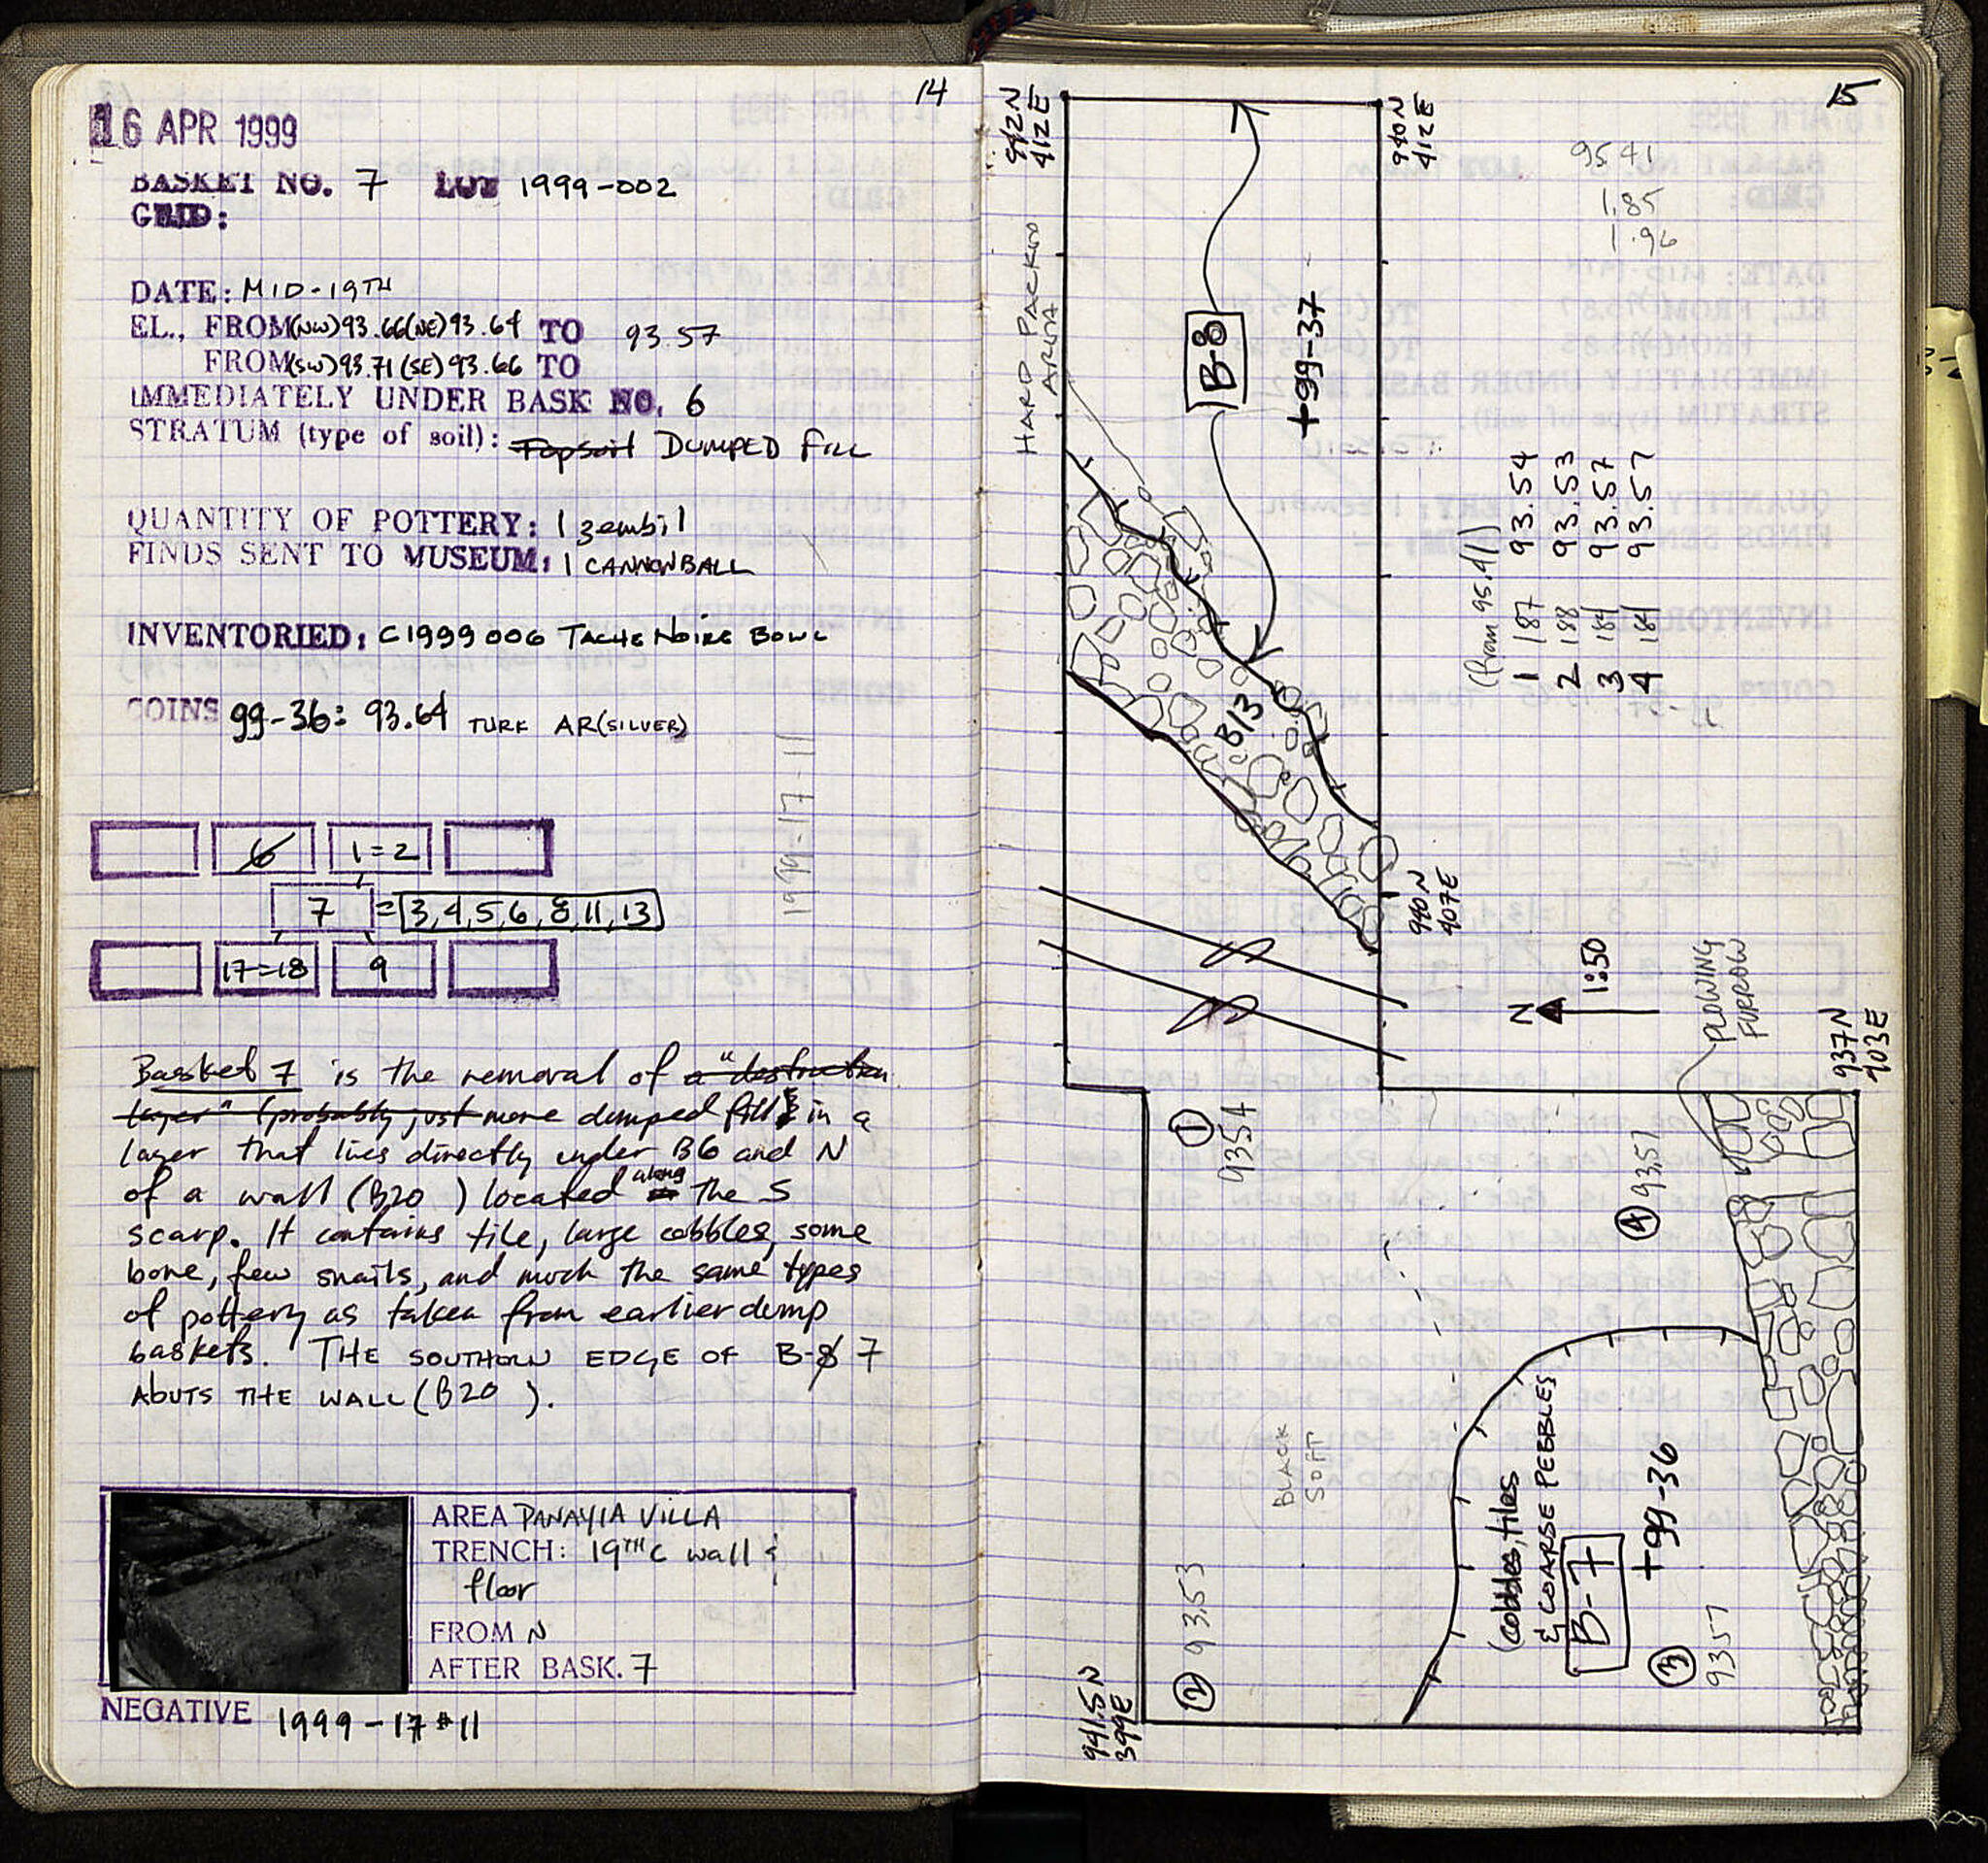 14
16 APR 1999
BASKET NO. 7 LOT 1999-002
GRID:
DATE: MID-19TH
EL., FROM (NW) 93.66 (NE) 93.64 TO 93.57
FROM (SW) 93.71 (SE) 93.66 TO
IMMEDIATELY UNDER BASK NO. 6
STRATUM (type of soil): Topsoil DUMPED FILL
QUANTITY OF POTTERY: 1 zembil
FINDS SENT TO MUSEUM: 1 CANNONBALL
INVENTORIED: C1999 006 TACHE NOIRE BOWL
COINS 99-36: 93.64 TURK AR (SILVER)
1999-17-11
6 1=2
7 = 3,4,5,6,8,11,13
17=18 9
Basket 7 is the removal of a "destruction
layer" (probably just more dumped fill in a
layer that lies directly under B6 and N
of a wall (B20 ) located along the S
scarp. It contains tile, large cobbles, some
bone, few snails, and much the same types
of pottery as taken from earlier dump
baskets. THE SOUTHERN EDGE OF B-8 7
ABUTS THE WALL (B20 ).
AREA PANAYIA VILLA
TRENCH: 19TH C wall &
floor
FROM N
AFTER BASK. 7
NEGATIVE 1999-17#11
15
942N
412E
940N
412E
9541
1.85
1.96
HARD PACKED
AREA
B-8
+99-37
(from 95.41)
1 187 93.54
2 188 93.53
3 184 93.57
4 184 93.57
B13
940N
407E
N
1:50
PLOWING
FURROW
937N
403E
1
9354
4 93.57
BLACK
SOFT
cobbles, tiles
& COARSE PEBBLES
B-7
+99-36
2 93.53
3
9357
941.5N
399E